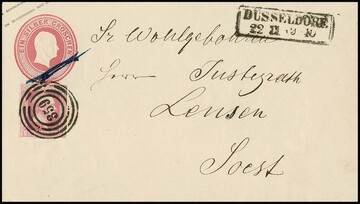 EIN SILBER GROSCHEN
DÜSSELDORF
22 II
Sr Wohlgeboren
Herrn Justizrath
Lensen
Soest
359